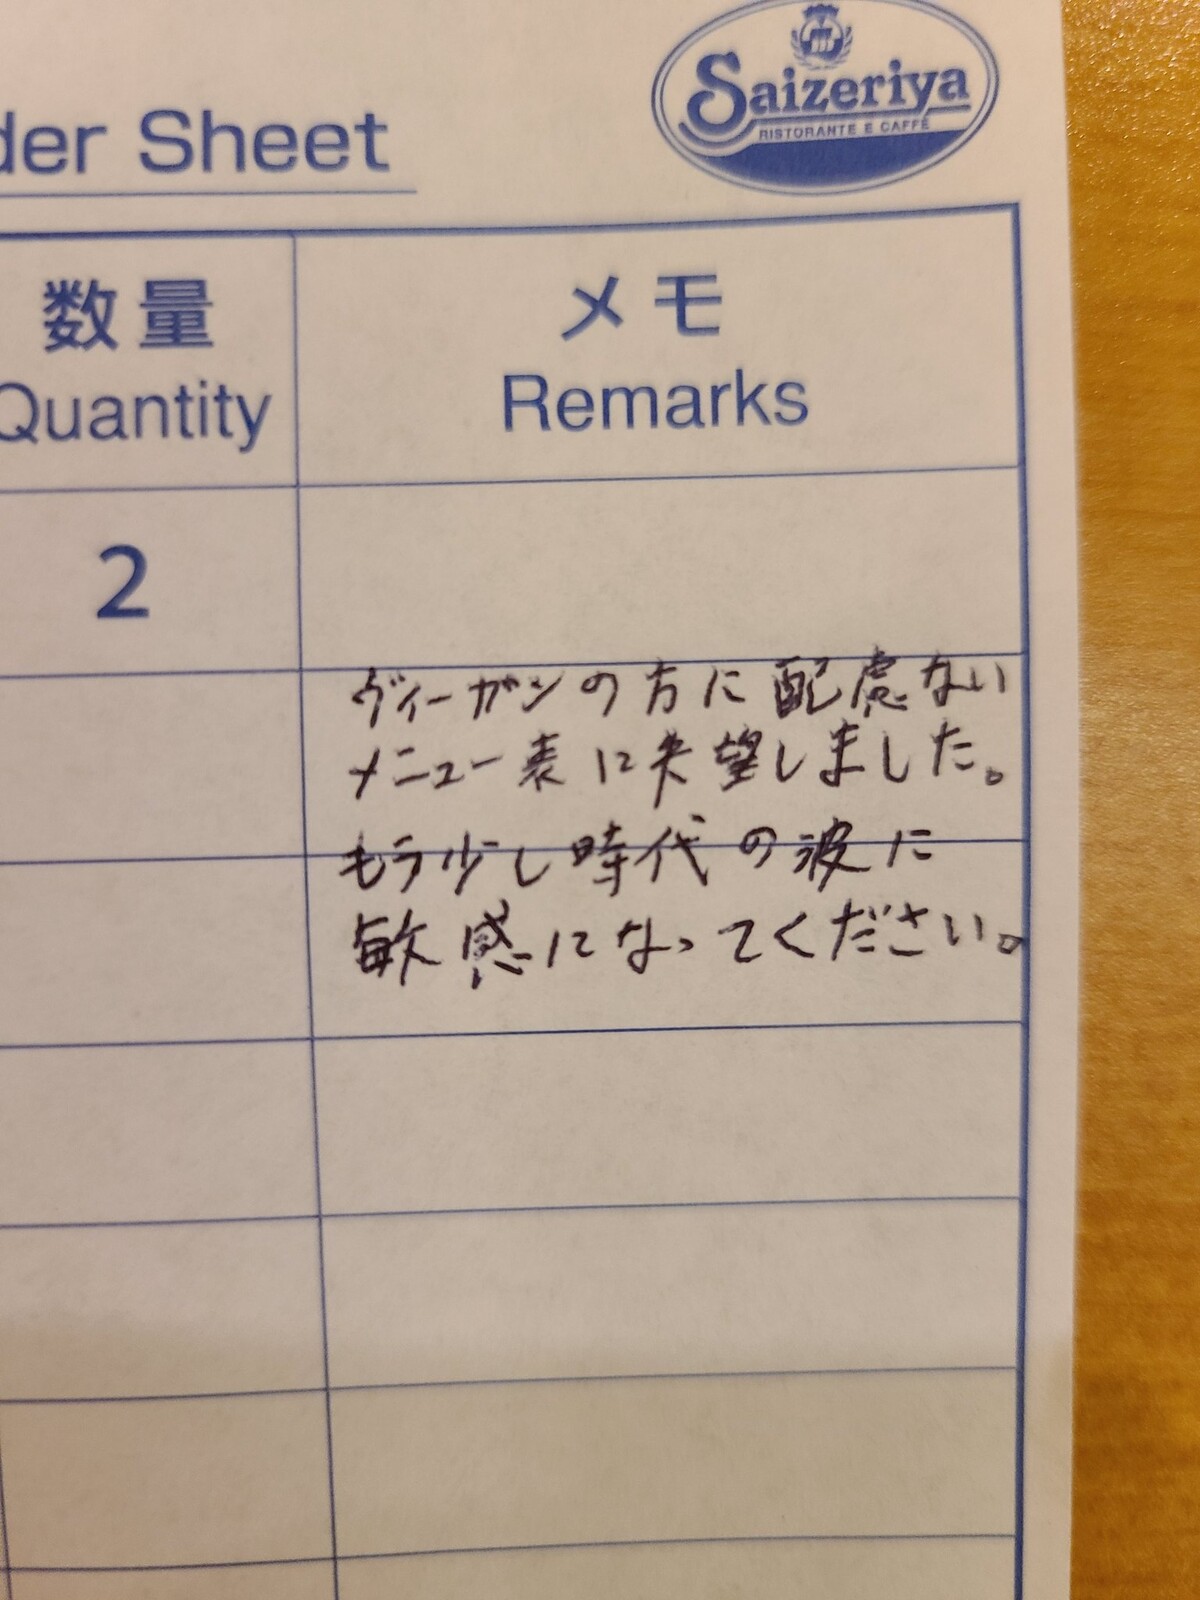 Saizeriya
RISTORANTE E CAFFÈ
der Sheet
数量
Quantity
メモ
Remarks
2
ヴィーガンの方に配慮ない
メニュー表に失望しました。
もう少し時代の波に
敏感になってください。